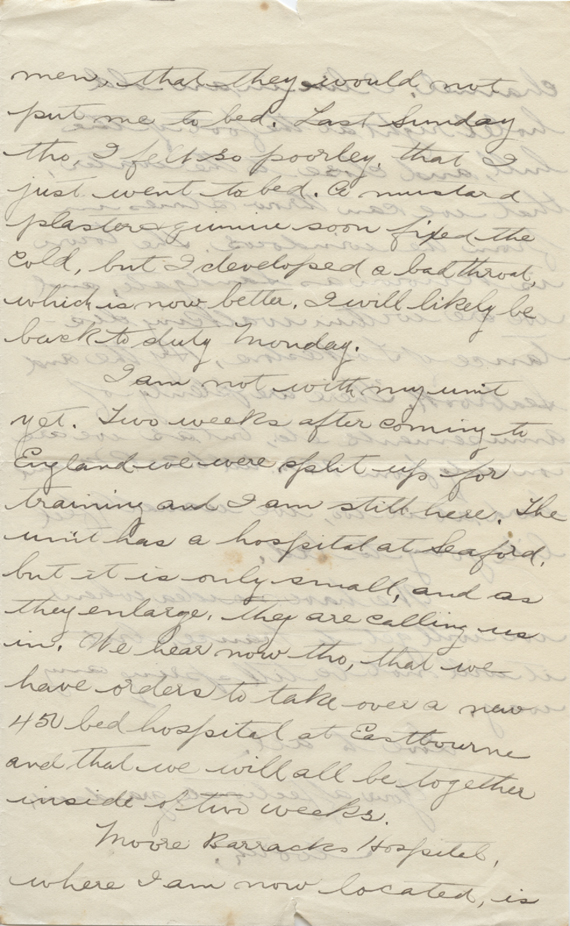 men, that they would not
put me to bed. Last Sunday
tho I felt so poorley, that I
just went to bed. A mustard
plaster & quinine soon fixed the
cold, but I developed a bad throat,
which is now better. I will likely be
back to duty Monday.
I am not with my unit
yet. Two weeks after coming to
England we were split up for
training and I am still here. The
unit has a hospital at Seaford,
but it is only small, and as
they enlarge, they are calling us
in. We hear now tho, that we
have orders to take over a new
450 bed hospital at Eastbourne
and that we will all be together
inside of two weeks.
Moore Barracks Hospital,
where I am now located, is